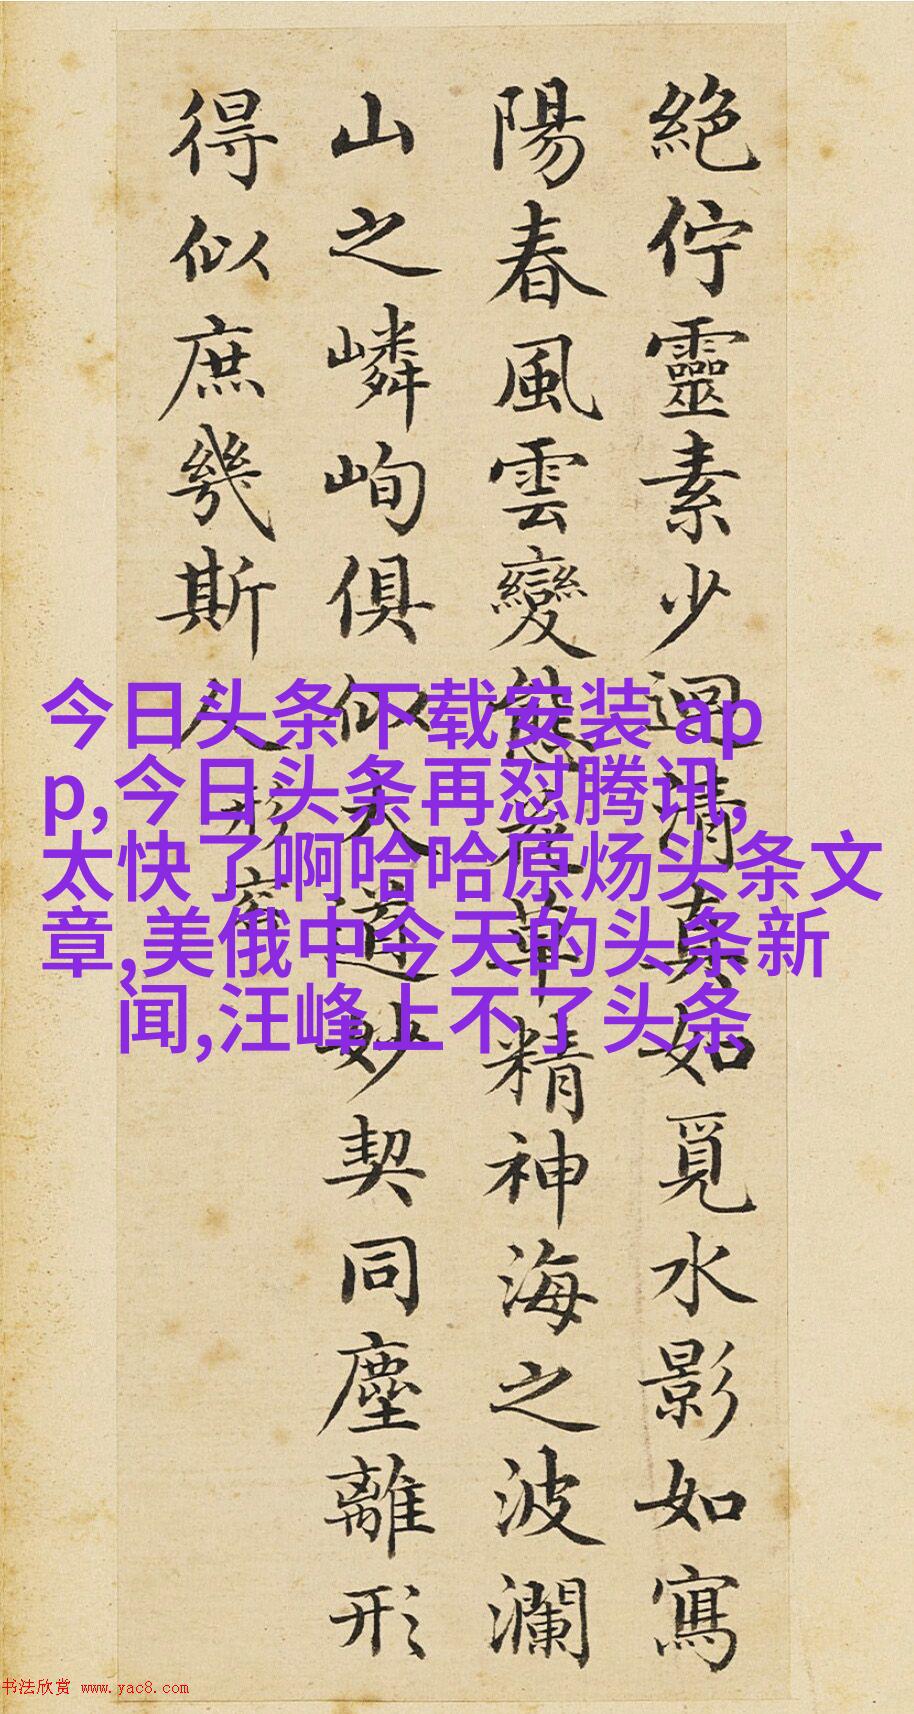 絕佇靈素少迴清真如覓水影如寫
陽春風雲變態草精神海之波瀾
山之嶙峋俱似大道妙契同塵離形
得似庶幾斯人
形容
今日头条下载安装 ap
p,今日头条再怼腾讯,
太快了啊哈哈原炀头条文
章,美俄中今天的头条新
闻,汪峰上不了头条
书法欣赏 www.yac8.com